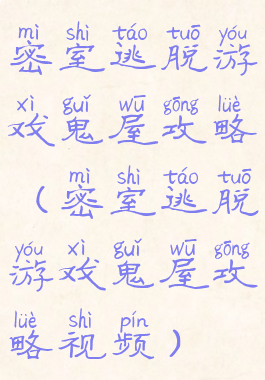 mì shì táo tuō yóu
密室逃脱游
xì guǐ wū gōng lüè
戏鬼屋攻略
mì shì táo tuō
（密室逃脱
yóu xì guǐ wū gōng
游戏鬼屋攻
lüè shì pín
略视频）